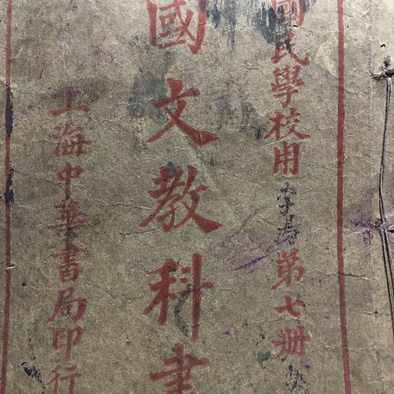 國民學校用
第七册
國文教科書
上海中華書局印行